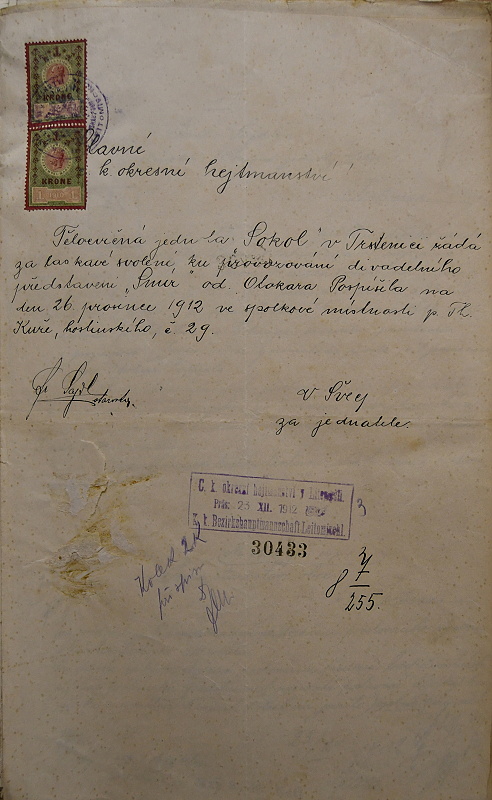 KRONE
KRONE
Slavné
k. okresní hejtmanství
Tělocvičná jednota „Sokol" v Trstenici žádá
za laskavé svolení ku provozování divadelního
představení „Smír" od Otokara Pospíšila na
den 26. prosince 1912 ve spolkové místnosti p. Th.
Kuře, hostinského, č. 29.
starosta.
V Švec
za jednatele.
C. k. okresní hejtmanství v Litomyšli.
Präs. 23 XII. 1912
K. k. Bezirkshauptmannschaft Leitomischl.
3
30433
Kolek 2K
při spisu
8 7
255.